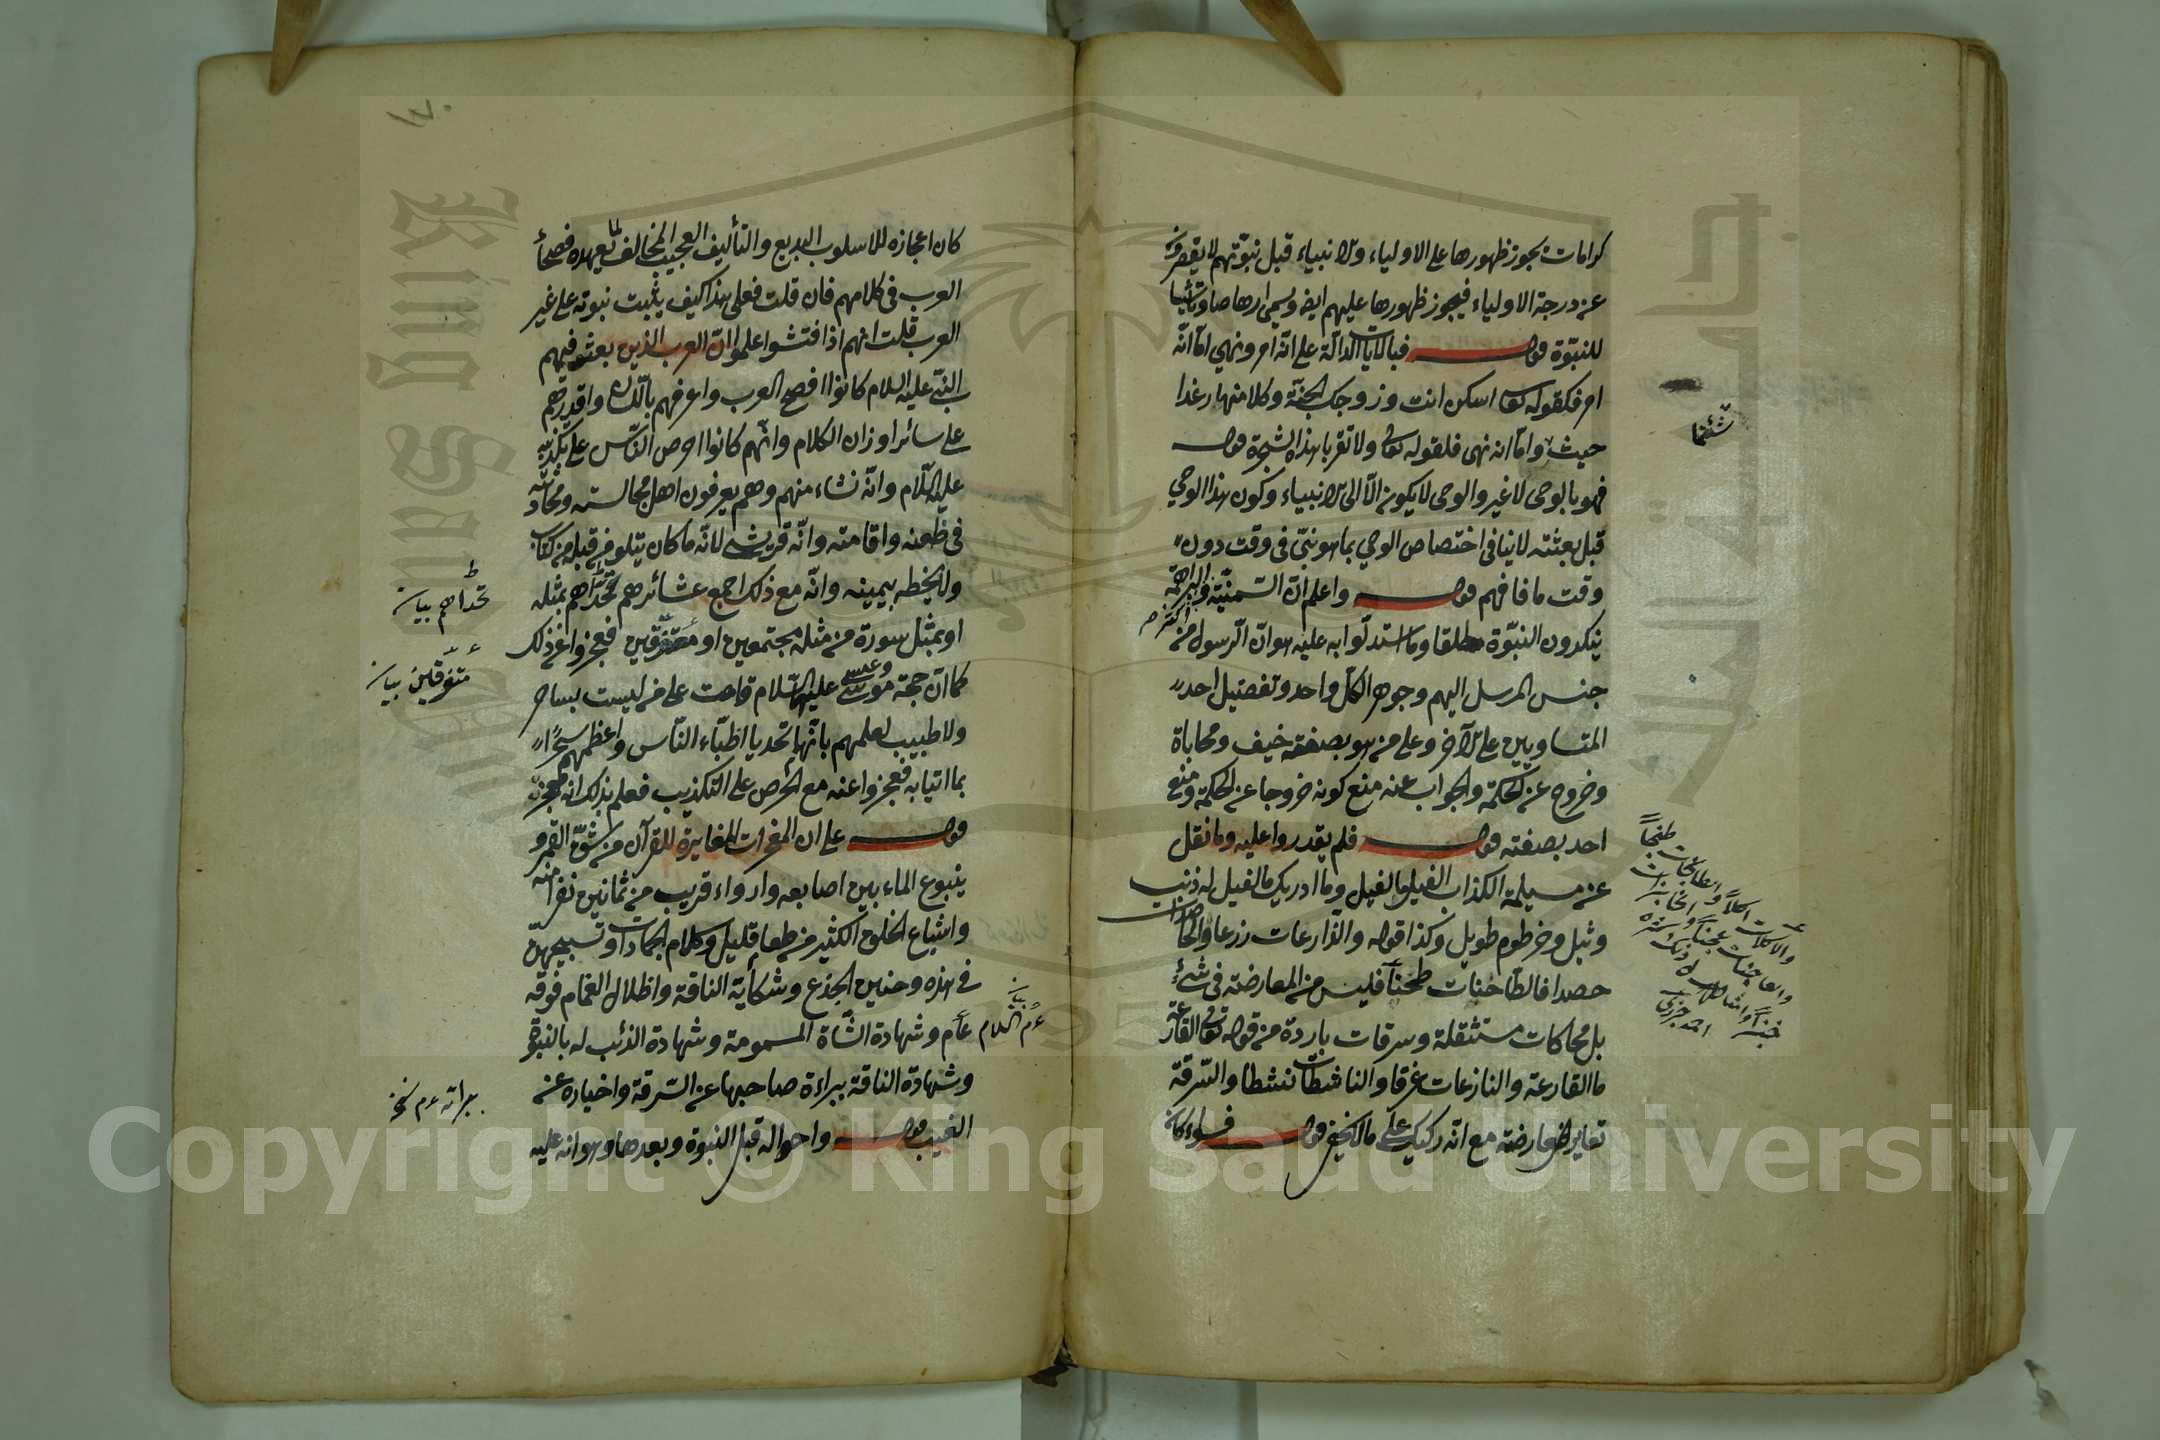 كرامات يجوز ظهورها على الاولياء والانبياء قبل نبوتهم لا يقصر
عن درجة الاولياء فيجوز ظهورها عليهم ايض ويسمى ارهاصا وتأسيسا
للنبوة قوله فبالآيات الدالة على انه امر ونهي اما انه
امر فكقوله تعا اسكن انت وزوجك الجنة وكلا منها رغدا
حيث واما انه نهى فلقوله تعا ولا تقربا هذه الشجرة قوله
فهو بالوحى لا غير والوحى لا يكون الا الى الانبياء وكون هذا الوحي
قبل بعثته لا ينافى اختصاص الوحي بما هو نبى فى وقت دون
وقت مافافهم قوله واعلم ان السمنية والبراهمة
ينكرون النبوة مطلقا وما استدلوا به عليه هو ان الرسول من
جنس المرسل اليهم وجوهر الكل واحد وتفضيل احد
المتساويين على الآخر وعلى من هو بصفته حيف ومحاباة
وخروج عن الحكمة والجواب عنه منع كونه خروجا عن الحكمة ومنع
احد بصفته قوله فلم يقدروا عليه وما نقل
عن مسيلمة الكذاب الفيل ما الفيل وما ادريك ما الفيل له ذنب
وثيل وخرطوم طويل وكذا قوله والزارعات زرعا والحاصدات
حصدا فالطاحنات طحنا فليس من المعارضة فى شئ
بل محاكات مستثقلة وسرقات باردة من قوله تعالى القارعة
ما القارعة والنازعات غرقا والناشطات نشطا والسرقة
تغاير المعارضة مع انه ركيك على ما لا يخفى قوله فسواء كان
شئتما
والآكلات اكلا والطابخات طبخا
والعاجنات عجنا والخابزات
خبزا وامثال ذلك
كان اعجازه للاسلوب البديع والتأليف العجيب المخالف لما يعهده فصحاء
العرب فى كلامهم فان قلت فعلى هذا كيف يثبت نبوته على غير
العرب قلت انهم اذا فتشوا علموا ان العرب الذين بعث فيهم
النبى عليه السلام كانوا افصح العرب واعرفهم باللسان واقدرهم
على سائر اوزان الكلام وانهم كانوا احرص الناس على تكذيبه
عليه السلام وانه نشاء منهم وهم يعرفون اهل مجالسته ومحادثته
فى ظعنه واقامته وانه قريشى لانه ما كان يتلو من قبله من كتاب
ولا يخطه بيمينه وانه مع ذلك اجمع عشائرهم تحداهم بمثله
او بمثل سورة من مثله مجتمعين او متفرقين فعجزوا عن ذلك
كما ان حجة موسى وعيسى عليهما السلام قامت على من ليست بساحر
ولا طبيب لعلمهم بانهما تحديا اطباء الناس واعظمهم سحرا
بما اتيا به فعجزوا عنه مع الحرص على التكذيب فعلم بذلك انه معجزة
قوله على ان المعجزات المغايرة للقرآن من شق القمر و
ينبوع الماء بين اصابعه وارواء قريب من ثمانين نفرا منه
واشباع الخلق الكثير من طعا قليل وكلام الجمادات وتسبيحهن
فى هذه وحنين الجذع وشكاية الناقة واظلال الغمام فوقه
عم وشهادة الشاة المسمومة وشهادة الذئب له بالنبوة
وشهادة الناقة ببراءة صاحبها عن السرقة واخباره عن
الغيب قوله واحواله قبل النبوة وبعدها وهو انه عليه
تحداهم بيان
متفرقين بيان